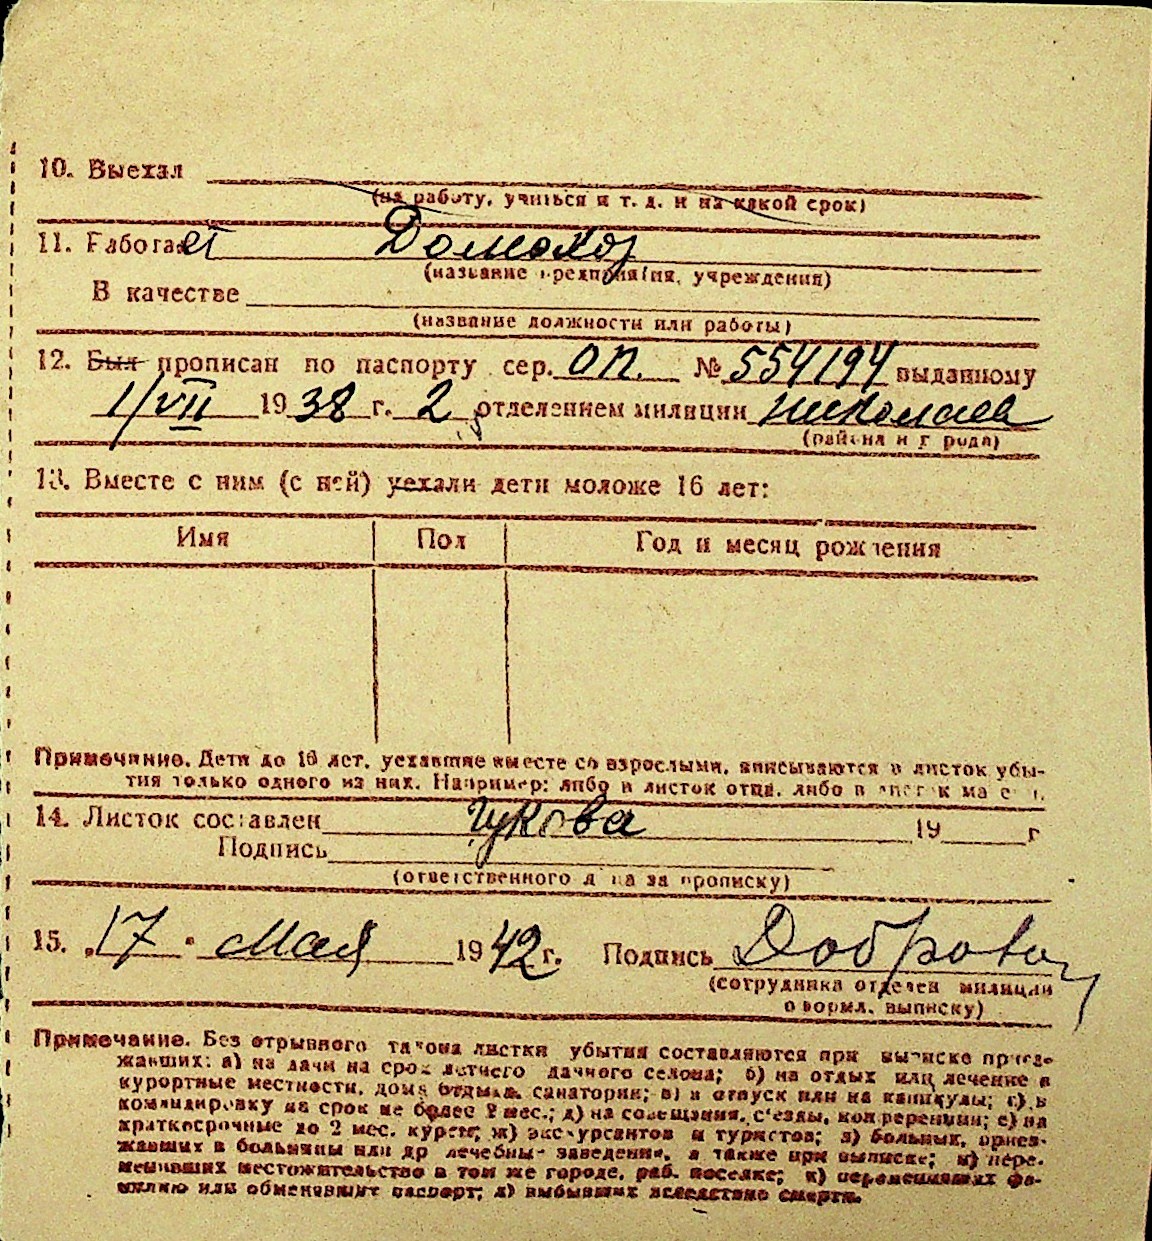 10. Выехал
(на работу, учиться и т. д. и на какой срок)
11. Работает Домохоз
(название предприятия, учреждения)
В качестве
(название должности или работы)
12. Был прописан по паспорту сер. ОП. № 554194 выданному
1/VII 1938 г. 2 отделением милиции Николаев
(района и города)
13. Вместе с ним (с ней) уехали дети моложе 16 лет:
Имя Пол Год и месяц рождения
Примечание. Дети до 16 лет, уехавшие вместе со взрослыми, вписываются в листок убы-
тия только одного из них. Например: либо в листок отца, либо в листок матери.
14. Листок составлен 19 г
Подпись
(ответственного лица за прописку)
15. „17" Мая 1942 г. Подпись Добровол
(сотрудника отделен милиции
оформл. выписку)
Примечание. Без отрывного талона листки убытия составляются при выписке приез-
жавших: а) на дачи на срок летнего дачного сезона; б) на отдых или лечение в
курортные местности, дома отдыха, санатории; в) в отпуск или на каникулы; г) в
командировку на срок не более 2 мес.; д) на совещания, с'езды, конференции; е) на
краткосрочные до 2 мес. курсы; ж) экскурсантов и туристов; з) больных, приез-
жавших в больницы или др лечебны заведения, а также при выписке; и) пере-
менивших местожительство в том же городе, раб. поселке; к) переменивших фа-
милию или обменявших паспорт; л) выбывших вследствие смерти.